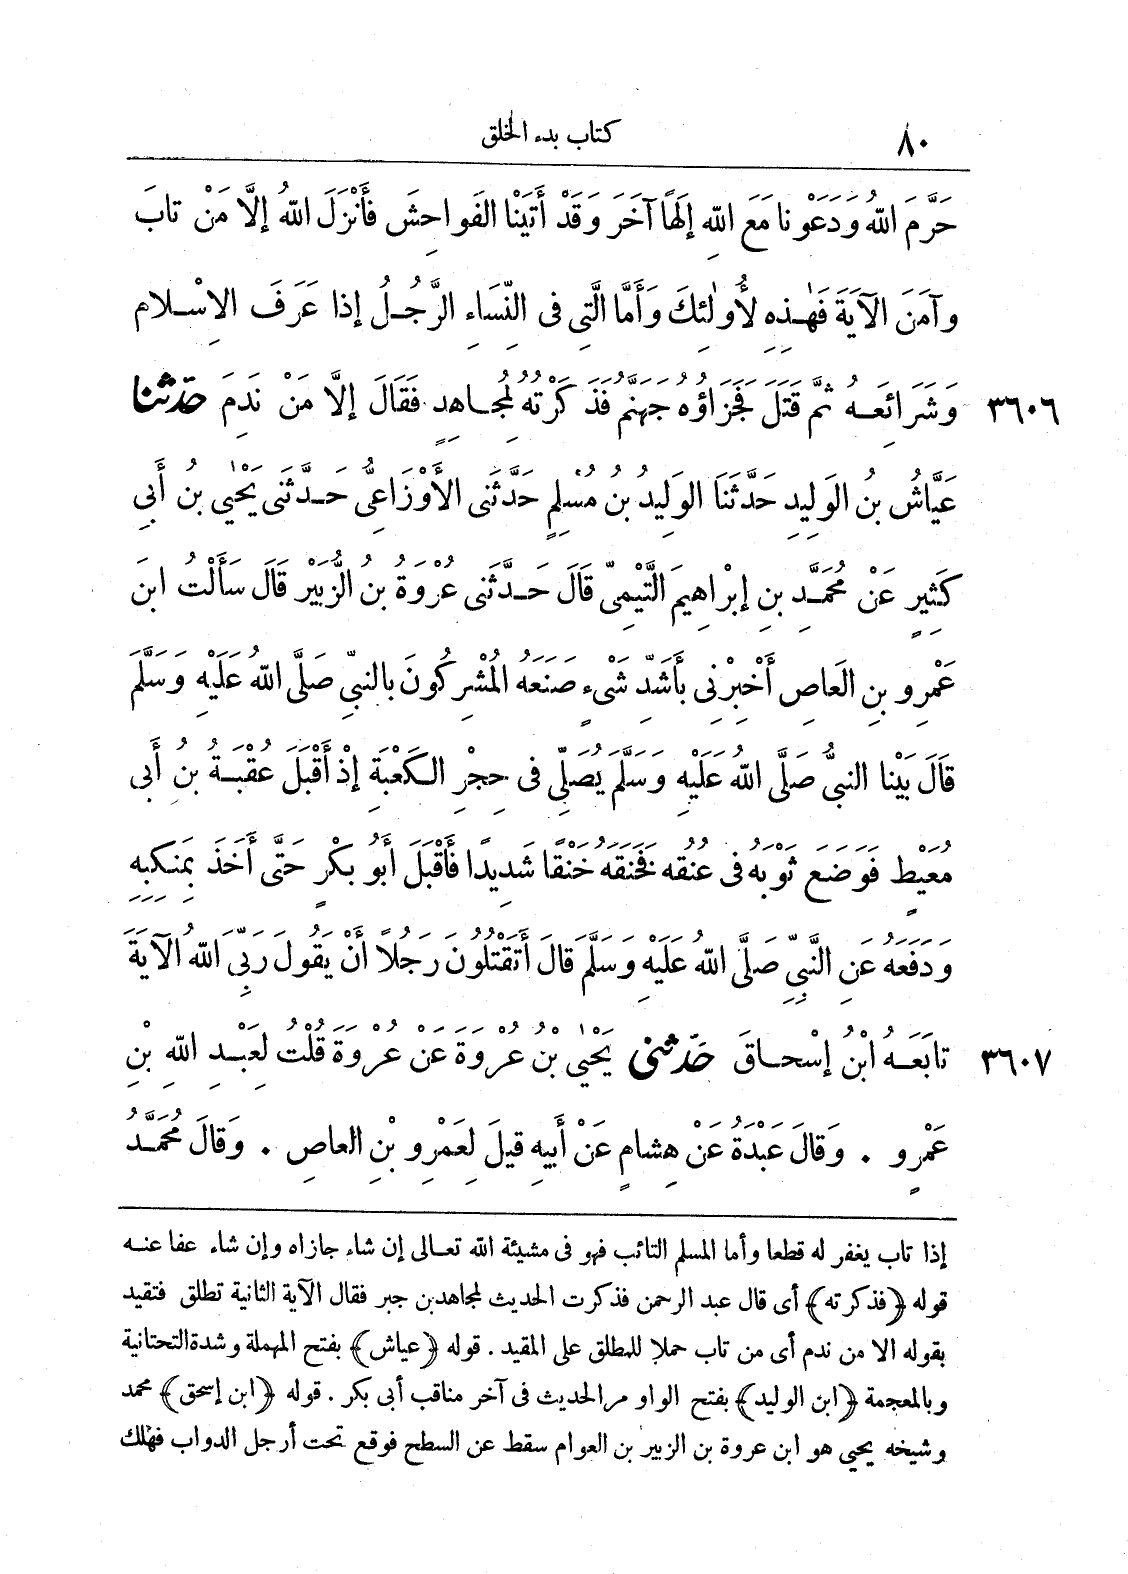 ٨٠ كتاب بدء الخلق
حَرَّمَ اللهُ وَدَعَوْنا مَعَ اللهِ إلَهًا آخَرَ وَقَدْ أَتَيْنا الفَواحِشَ فَأَنْزَلَ اللهُ إلَّا مَنْ تابَ
وآمَنَ الآيَةَ فَهٰذِهِ لِأُولٰئِكَ وَأَمَّا الَّتِي فى النِّسَاءِ الرَّجُلُ إذا عَرَفَ الاِسْلام
٣٦٠٦ وَشَرَائِعَهُ ثُمَّ قَتَلَ فَجَزَاؤُهُ جَهَنَّمُ فَذَكَرْتُهُ لِمُجاهِدٍ فَقَالَ إلَّا مَنْ نَدِمَ حَدّثنا
عَيَّاشُ بنُ الوَلِيدِ حَدَّثَنَا الوَلِيدُ بنُ مُسْلِمٍ حَدَّثَنى الأَوْزَاعِىُّ حَدَّثَنى يَحْيٰى بنُ أَبِى
كَثِيرٍ عَنْ مُحَمَّدِ بنِ إبْراهِيمَ التَّيْمِىّ قَالَ حَدَّثَنى عُرْوَةُ بنُ الزُّبَيْرِ قَالَ سَأَلْتُ ابنَ
عَمْرِو بنِ العَاصِ أَخْبِرْنِى بأَشَدِّ شَىْءٍ صَنَعَهُ المُشْرِكُونَ بالنبيّ صَلَّى اللهُ عَلَيْهِ وَسَلَّمَ
قَالَ بَيْنا النبىُّ صَلَّى اللهُ عَلَيْهِ وَسَلَّمَ يُصَلِّى فى حِجْرِ الكَعْبَةِ إذْ أَقْبَلَ عُقْبَةُ بنُ أَبِى
مُعَيْطٍ فَوَضَعَ ثَوْبَهُ فى عُنُقِهِ فَخَنَقَهُ خَنْقًا شَدِيدًا فَأَقْبَلَ أَبُو بَكْرٍ حَتَّى أَخَذَ بِمَنكِبِهِ
وَدَفَعَهُ عَنِ النَّبِيِّ صَلَّى اللهُ عَلَيْهِ وَسَلَّمَ قالَ أَتَقْتُلُونَ رَجُلًا أَنْ يَقُولَ رَبِّىَ اللهُ الآيَةَ
٣٦٠٧ تابَعَهُ ابْنُ إسْحاقَ حَدّثنى يَحْيٰى بنُ عُرْوَةَ عَنْ عُرْوَةَ قُلْتُ لِعَبْدِ اللهِ بْنِ
عَمْرٍو . وَقالَ عَبْدَةُ عَنْ هِشامٍ عَنْ أَبِيهِ قِيلَ لِعَمْرِو بْنِ العاصِ . وَقالَ مُحَمَّدُ
إذا تاب يغفر له قطعا وأما المسلم التائب فهو فى مشيئة الله تعالى إن شاء جازاه وإن شاء عفا عنه
قوله ﴿فذكرته﴾ أى قال عبد الرحمن فذكرت الحديث لمجاهد بن جبر فقال الآية الثانية تطلق فتقيد
بقوله الا من ندم أى من تاب حملا للمطلق على المقيد . قوله ﴿عياش﴾ بفتح المهملة وشدة التحتانية
وبالمعجمة ﴿ابن الوليد﴾ بفتح الواو مر الحديث فى آخر مناقب أبى بكر . قوله ﴿ابن إسحق﴾ محمد
وشيخه يحيى هو ابن عروة بن الزبير بن العوام سقط عن السطح فوقع تحت أرجل الدواب فهلك